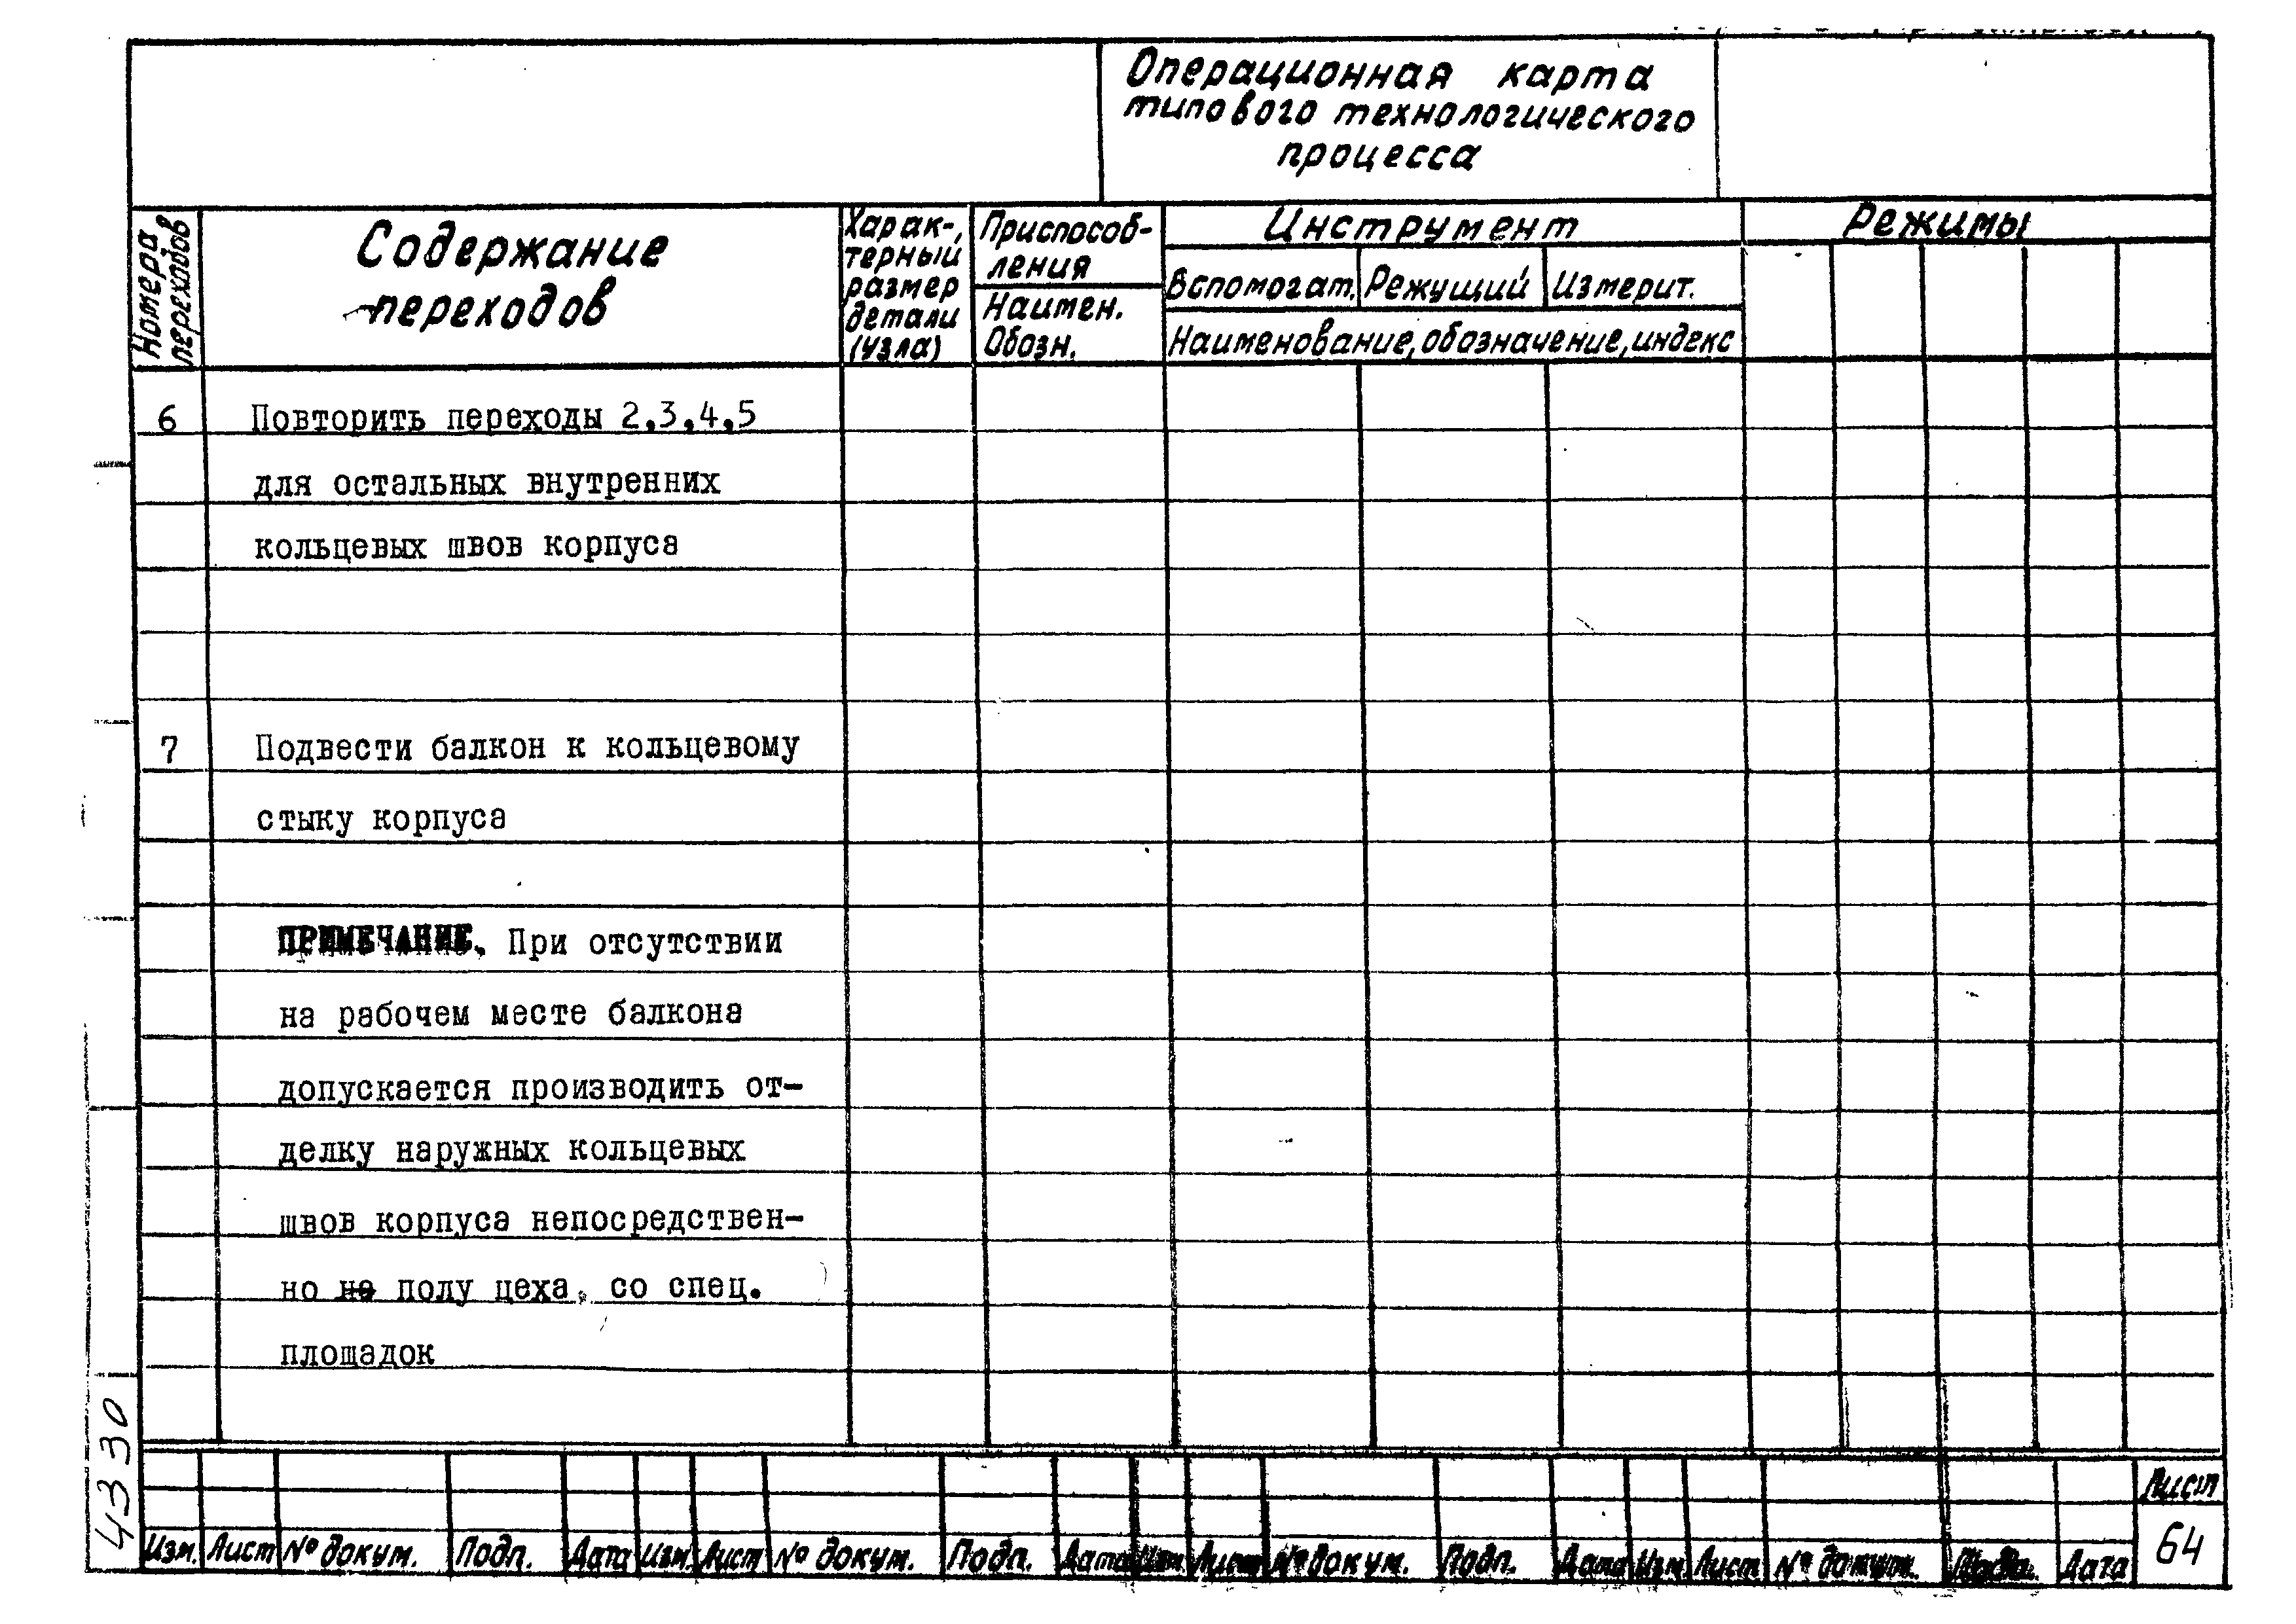 Операционная карта
типового технологического
процесса
Номера
переходов
Содержание
переходов
Харак-
терный
размер
детали
(узла)
Приспособ-
ления
Наимен.
Обозн.
Инструмент
Вспомогат. Режущий Измерит.
Наименование, обозначение, индекс
Режимы
6 Повторить переходы 2,3,4,5
для остальных внутренних
кольцевых швов корпуса
7 Подвести балкон к кольцевому
стыку корпуса
ПРИМЕЧАНИЕ. При отсутствии
на рабочем месте балкона
допускается производить от-
делку наружных кольцевых
швов корпуса непосредствен-
но на полу цеха, со спец.
площадок
4330
Изм. Лист № докум. Подп. Дата Изм. Лист № докум. Подп. Дата Изм. Лист № докум. Подп. Дата Изм. Лист № докум. Подп. Дата
Лист
64